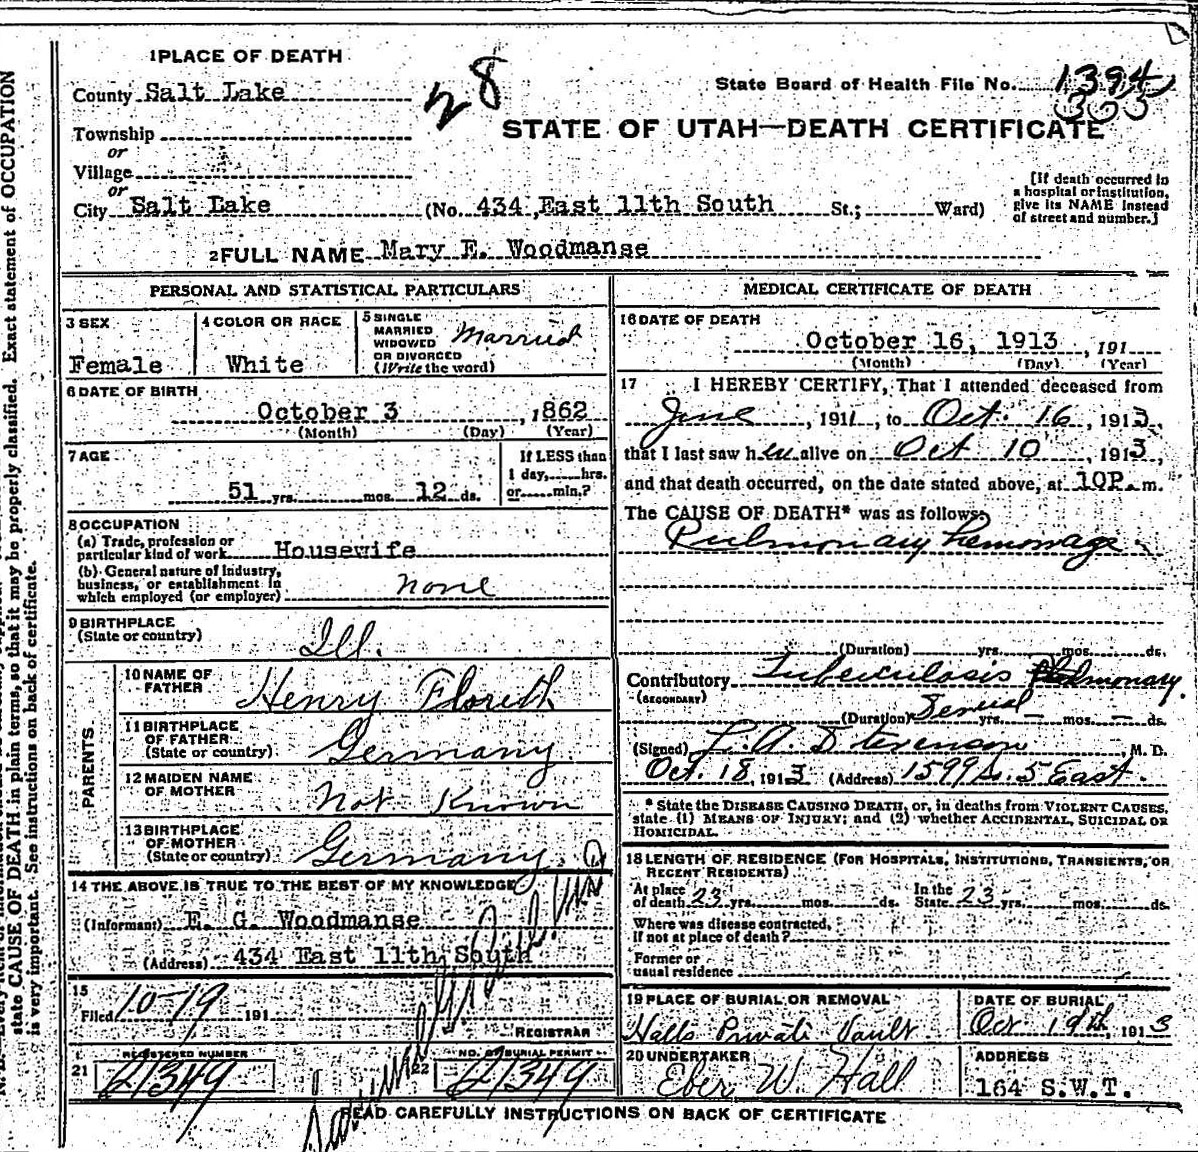 1 PLACE OF DEATH
County Salt Lake
Township
or
Village
or
City Salt Lake (No. 434, East 11th South St.; Ward)
28
State Board of Health File No. 1394
STATE OF UTAH—DEATH CERTIFICATE
[If death occurred in
a hospital or institution,
give its NAME instead
of street and number.]
2 FULL NAME Mary E. Woodmanse
PERSONAL AND STATISTICAL PARTICULARS
3 SEX
Female
4 COLOR OR RACE
White
5 SINGLE
MARRIED
WIDOWED
OR DIVORCED
(Write the word)
Married
6 DATE OF BIRTH
October 3, 1862
(Month) (Day) (Year)
7 AGE
51 yrs. mos. 12 ds.
If LESS than
1 day, hrs.
or min.?
8 OCCUPATION
(a) Trade, profession or
particular kind of work Housewife
(b) General nature of Industry,
business, or establishment in
which employed (or employer) none
9 BIRTHPLACE
(State or country) Ill.
PARENTS
10 NAME OF
FATHER Henry Floreth
11 BIRTHPLACE
OF FATHER
(State or country) Germany
12 MAIDEN NAME
OF MOTHER Not Known
13 BIRTHPLACE
OF MOTHER
(State or country) Germany.
14 THE ABOVE IS TRUE TO THE BEST OF MY KNOWLEDGE
(Informant) E. G. Woodmanse
(Address) 434 East 11th South
15
Filed 10-19 191
REGISTRAR
REGISTERED NUMBER
21 21349
NO. OF BURIAL PERMIT
22 21349
MEDICAL CERTIFICATE OF DEATH
16 DATE OF DEATH
October 16, 1913, 191
(Month) (Day) (Year)
17 I HEREBY CERTIFY, That I attended deceased from
June, 1911, to Oct. 16, 1913,
that I last saw her alive on Oct 10, 1913,
and that death occurred, on the date stated above, at 10P. m.
The CAUSE OF DEATH* was as follows:
Pulmonary hemorrage.
(Duration) yrs. mos. ds.
Contributory Tuberculosis Pulmonary.
(SECONDARY)
(Duration) yrs. mos. ds.
(Signed) L. A. Stevenson, M. D.
Oct. 18, 1913 (Address) 1599 S. 5 East.
* State the DISEASE CAUSING DEATH, or, in deaths from VIOLENT CAUSES,
state (1) MEANS OF INJURY; and (2) whether ACCIDENTAL, SUICIDAL OR
HOMICIDAL.
18 LENGTH OF RESIDENCE (FOR HOSPITALS, INSTITUTIONS, TRANSIENTS, OR
RECENT RESIDENTS)
At place
of death 23 yrs. mos. ds. In the
State 23 yrs. mos. ds.
Where was disease contracted,
If not at place of death?
Former or
usual residence
19 PLACE OF BURIAL OR REMOVAL
Halls Private Vault
DATE OF BURIAL
Oct 19th, 1913
20 UNDERTAKER
Eber W. Hall
ADDRESS
164 S.W.T.
READ CAREFULLY INSTRUCTIONS ON BACK OF CERTIFICATE
state CAUSE OF DEATH in plain terms, so that it may be properly classified. Exact statement of OCCUPATION
is very important. See instructions on back of certificate.